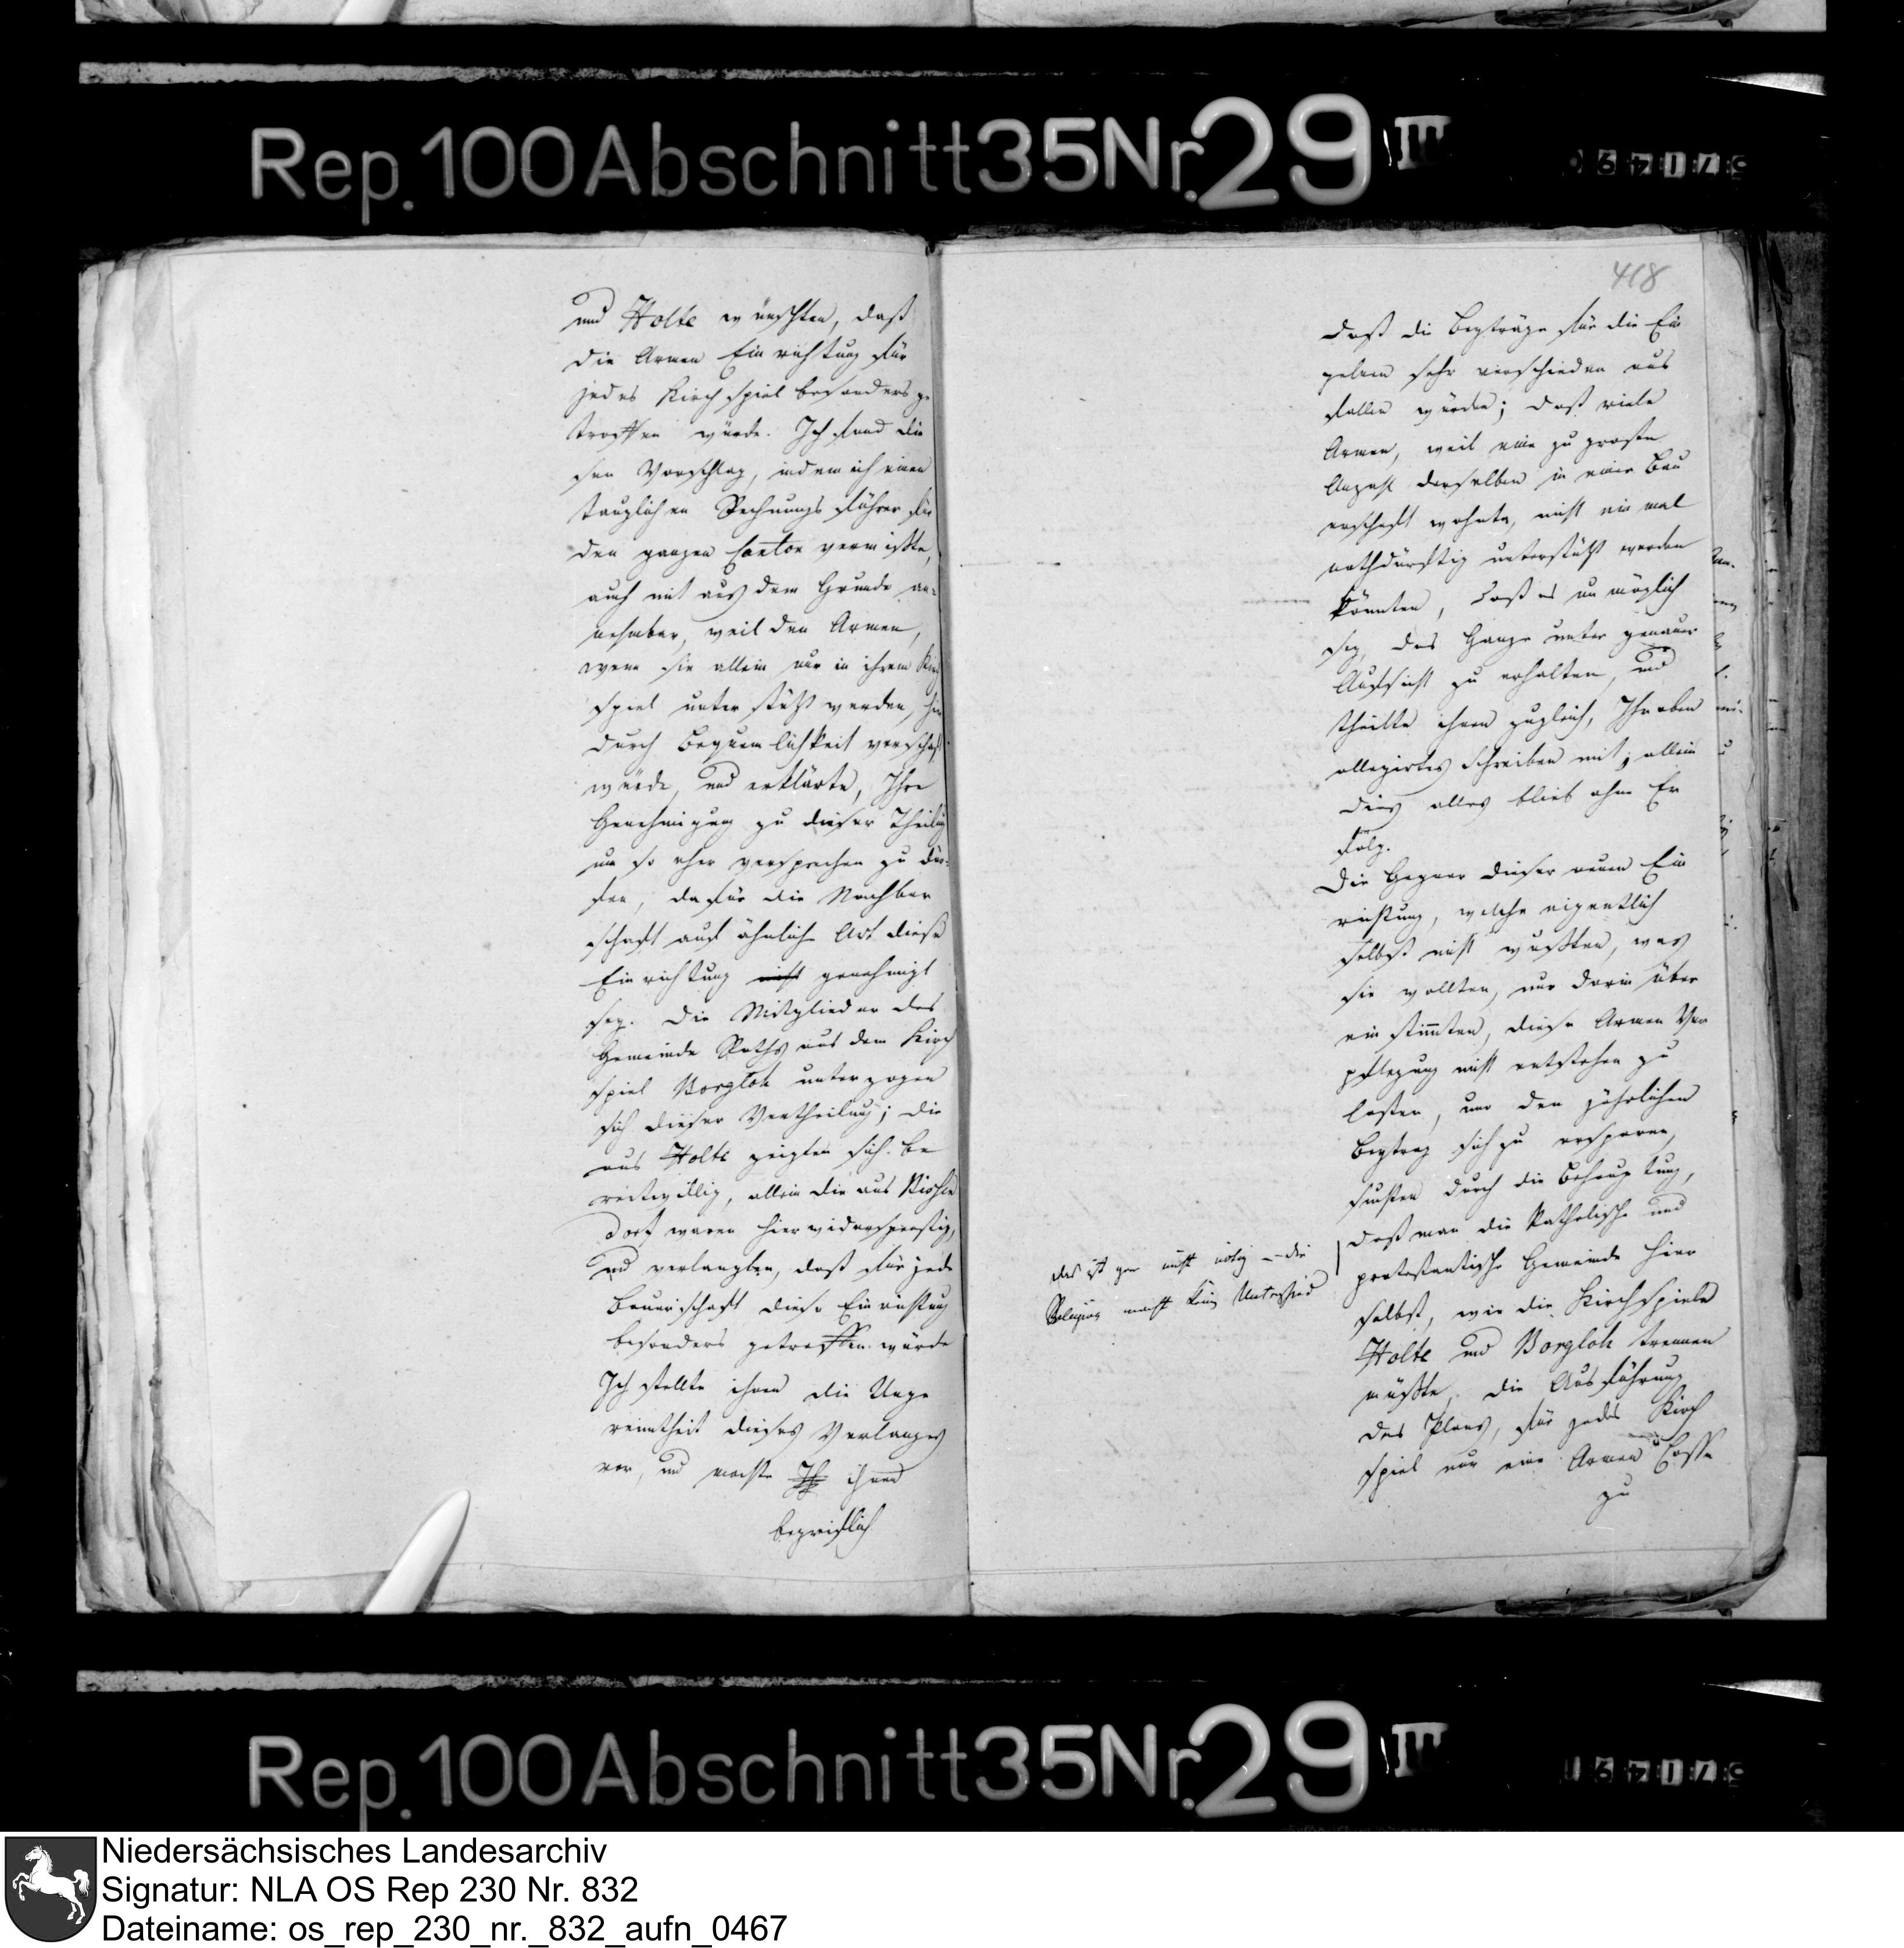 Rep. 100 Abschnitt 35 Nr. 29 III
und Holte wünschten, daß
die Armen Einrichtung für
jedes Kirchspiel besonders ge
troffen würde. Ich fand die
sen Vorschlag, indem ich einen
tauglichen Rechnungsführer für
den ganzen Canton vermißte,
auch mit aus dem Grunde an-
nehmbar, weil den Armen,
wenn sie allein nur in ihrem Kirch
spiel unterstützt werden, hie
durch Bequemlichkeit verschaft
würde, und erklärte, Ihre
Genehmigung zu dieser Theilung
um so eher versprechen zu dür-
fen, da für die Nachbar
schaft auf ähnliche Art diese
Einrichtung nicht genehmigt
sey. Die Mitglieder des
Gemeinde Raths aus dem Kirch
spiel Borgloh unterzogen
sich dieser Vertheilung; die
aus Holte zeigten sich be
reitwillig, allein die aus
dorf waren hier widerspenstig,
und verlangten, daß für jede
Bauerschaft diese Einrichtung
besonders getroffen würde
Ich stellte ihnen die Unge
reimtheit dieses Verlanges
vor, und machte Ih ihnen
begreiflich
418
daß die Beyträge für die Ein
gelnen sehr verschieden aus
fallen würden; daß viele
Armen, weil eine zu große
Anzahl derselben in einer Bau
erschaft wohnte, nicht ein mal
nothdürftig unterstützt werden
könnten, daß es unmöglich
sey, das Ganze unter genauer
Aufsicht zu erhalten, und
theilte ihnen zugleich, Ihr oben
allegirtes Schreiben mit; allein
dies alles blieb ohne Er
folg.
Die Gegner dieser neuen Ein
richtung, welche eigentlich
selbst nicht wußten, was
sie wollten, nur darin über
ein stimmten, diese Armen Ver
pflegung nicht entstehen zu
lassen, um den jährlichen
Beytrag sich zu ersparen,
suchten durch die Behauptung,
daß man die Katholische und
protestantische Gemeinde hier
selbst, wie die Kirchspiele
Holte und Borgloh trennen
müßte, die Ausführung
des Plans, für jedes Kirch
spiel nur eine Armen Casse
zu
das ist gar nicht nötig – die
Religion macht kein Unterschied
Rep. 100 Abschnitt 35 Nr. 29 III
Niedersächsisches Landesarchiv
Signatur: NLA OS Rep 230 Nr. 832
Dateiname: os_rep_230_nr._832_aufn_0467